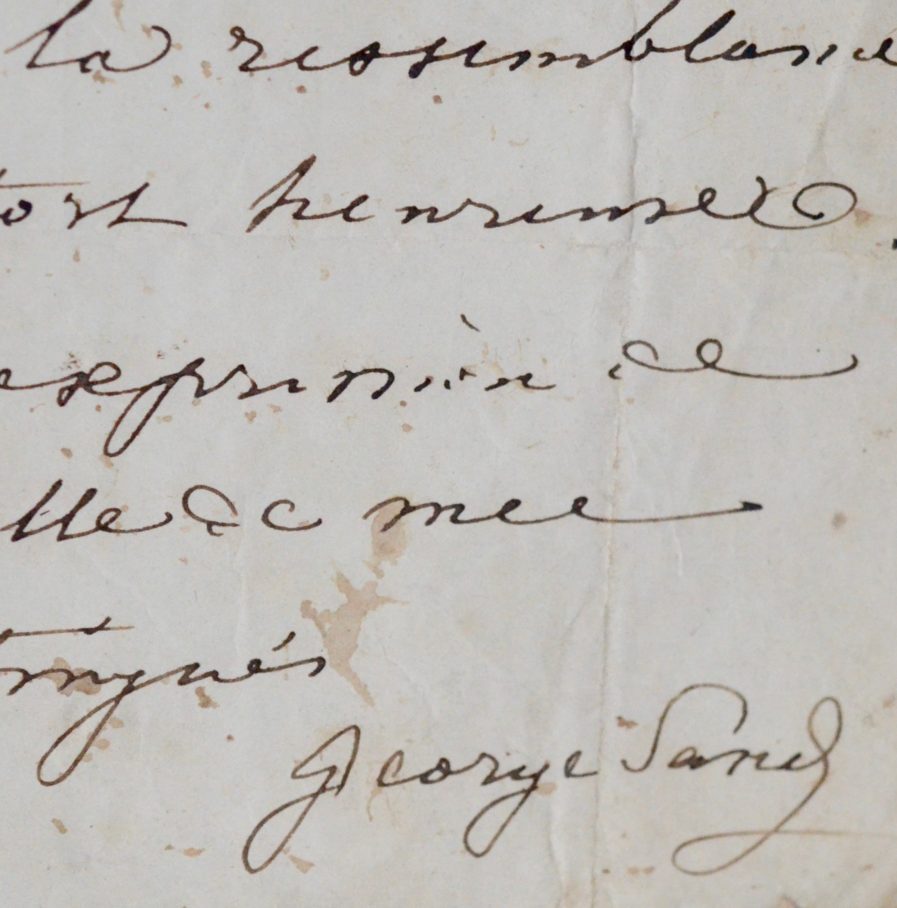 la ressemblance
fort heureuse
expression de
lle de mes
tingués
George Sand